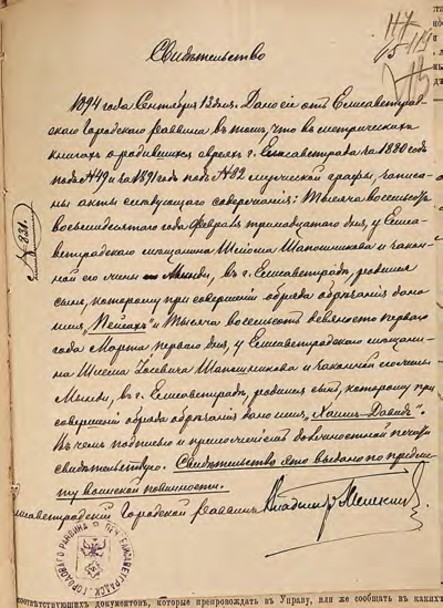 Свидѣтельство
1894 года Сентября 13 дня. Дано сіе отъ Елисаветград-
скаго Городского Раввина въ томъ, что въ метрическихъ
книгахъ о родившихся евреяхъ г. Елисаветграда за 1880 годъ
подъ №49 и за 1891 годъ подъ №82 мужеской графы, записа-
ны акты слѣдующаго содержанія: Тысяча восемьсотъ
восьмидесятаго года Февраля тринадцатаго дня, у Елиса-
ветградскаго мѣщанина Шліомы Шапошникова и закон-
ной его жены Мынди, въ г. Елисаветградѣ, родился
сынъ, которому при совершеніи обряда обрѣзанія дано
имя „Пейсахъ" и Тысяча восемьсотъ девяносто перваго
года Марта перваго дня, у Елисаветградскаго мѣщани-
на Шліома Шапошникова и законной его жены
Мынди, въ г. Елисаветградѣ, родился сынъ, которому при
совершеніи обряда обрѣзанія дано имя „Хаимъ-Давидъ".
Въ чемъ подписью и приложеніемъ должностной печати
свидѣтельствую. Свидѣтельство это выдано по предме-
ту воинской повинности.
Елисаветградскій Городской Раввинъ Владимир
№ 831.
соотвѣтствующихъ документовъ, которые препровождать въ Управу, или же сообщать въ какихъ